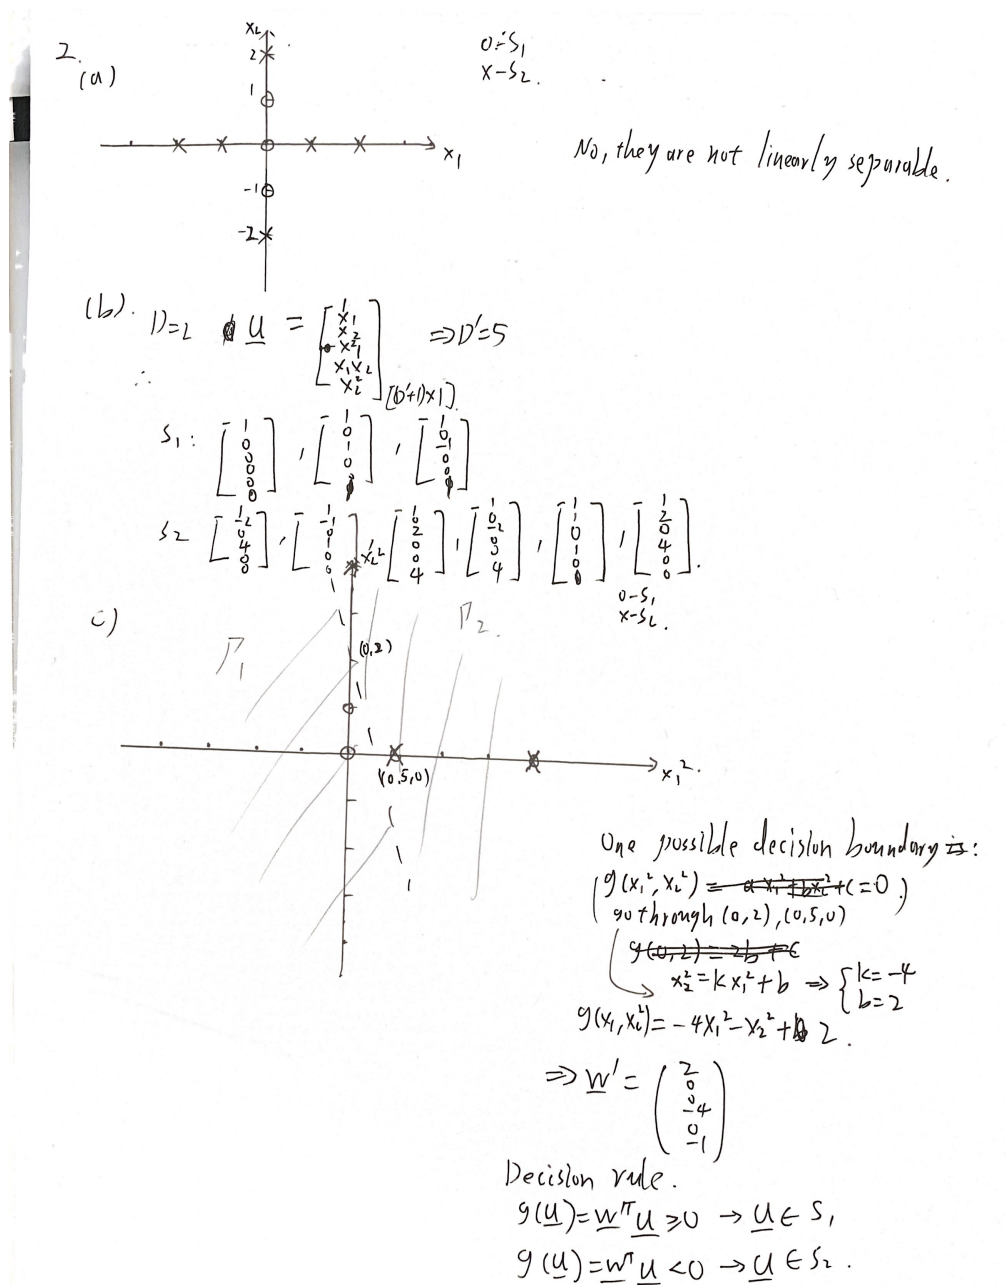 2.
(a)
x₂
2
1
-1
-2
x₁
o-S₁
x-S₂.
No, they are not linearly separable.
(b).
D=2 u = [1 x₁ x₂ x₁² x₁x₂ x₂²] [(D'+1)×1] ⇒D'=5
∴
S₁: [1 0 0 0 0 0], [1 0 1 0 0 1], [1 0 -1 0 0 1]
S₂ [1 -2 0 4 0 0], [1 -1 0 1 0 0], [1 0 2 0 0 4], [1 0 -2 0 0 4], [1 1 0 1 0 0], [1 2 0 4 0 0].
o-S₁
x-S₂.
c)
x₂²
Γ₁
Γ₂.
(0,2)
(0.5,0)
x₁².
One possible decision boundary is:
(g(x₁², x₂²) = a x₁²+bx₂²+c=0
go through (0,2),(0.5,0))
g(0,2)=2b+c
x₂²=kx₁²+b ⇒ {k=-4
b=2
g(x₁,x₂²)=-4x₁²-x₂²+2.
⇒w' = (2 0 0 -4 0 -1)
Decision rule.
g(u)=wᵀu ≥0 → u∈S₁
g(u)=wᵀu <0 → u∈S₂.